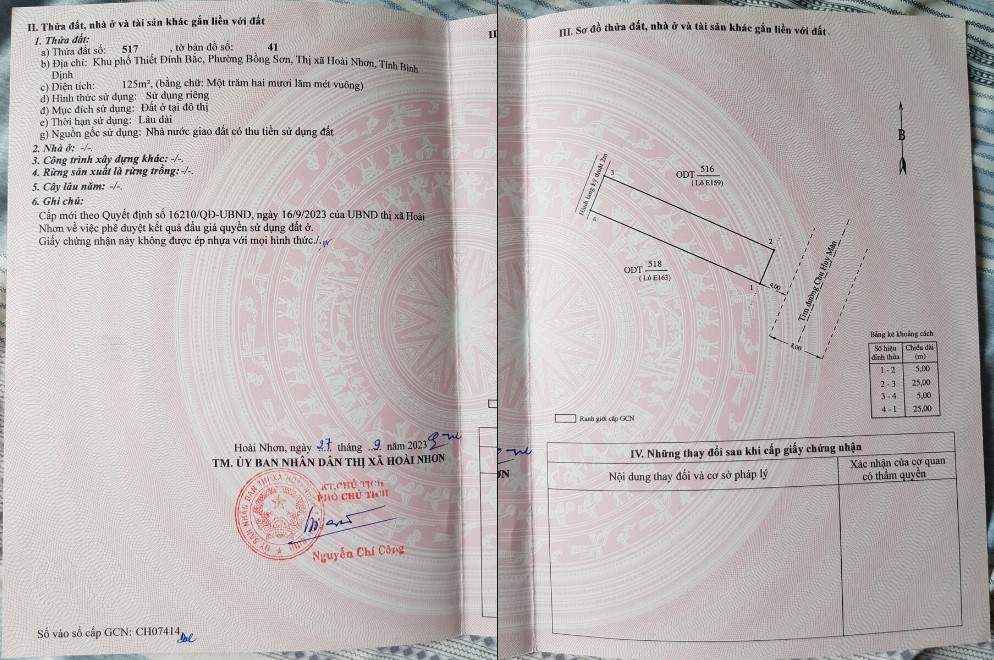 II. Thửa đất, nhà ở và tài sản khác gắn liền với đất
1. Thửa đất:
a) Thửa đất số: 517 , tờ bản đồ số: 41
b) Địa chỉ: Khu phố Thiết Đính Bắc, Phường Bồng Sơn, Thị xã Hoài Nhơn, Tỉnh Bình
Định
c) Diện tích: 125m², (bằng chữ: Một trăm hai mươi lăm mét vuông)
d) Hình thức sử dụng: Sử dụng riêng
đ) Mục đích sử dụng: Đất ở tại đô thị
e) Thời hạn sử dụng: Lâu dài
g) Nguồn gốc sử dụng: Nhà nước giao đất có thu tiền sử dụng đất
2. Nhà ở: -/-.
3. Công trình xây dựng khác: -/-.
4. Rừng sản xuất là rừng trồng: -/-.
5. Cây lâu năm: -/-.
6. Ghi chú:
Cấp mới theo Quyết định số 16210/QĐ-UBND, ngày 16/9/2023 của UBND thị xã Hoài
Nhơn về việc phê duyệt kết quả đấu giá quyền sử dụng đất ở.
Giấy chứng nhận này không được ép nhựa với mọi hình thức./.
Hoài Nhơn, ngày 27 tháng 9 năm 2023
TM. ỦY BAN NHÂN DÂN THỊ XÃ HOÀI NHƠN
KT.CHỦ TỊCH
PHÓ CHỦ TỊCH
Nguyễn Chí Công
Số vào sổ cấp GCN: CH07414
II
ƠN
III. Sơ đồ thửa đất, nhà ở và tài sản khác gắn liền với đất
B
Hành lang kỹ thuật 2m
3
4
ODT 516
(Lô E159)
2
ODT 518
(Lô E163)
1
4,00
Tim đường Chu Huy Mân
8,00
Bảng kê khoảng cách
Số hiệu đỉnh thửa Chiều dài (m)
1 - 2 5,00
2 - 3 25,00
3 - 4 5,00
4 - 1 25,00
Ranh giới cấp GCN
IV. Những thay đổi sau khi cấp giấy chứng nhận
Nội dung thay đổi và cơ sở pháp lý
Xác nhận của cơ quan
có thẩm quyền